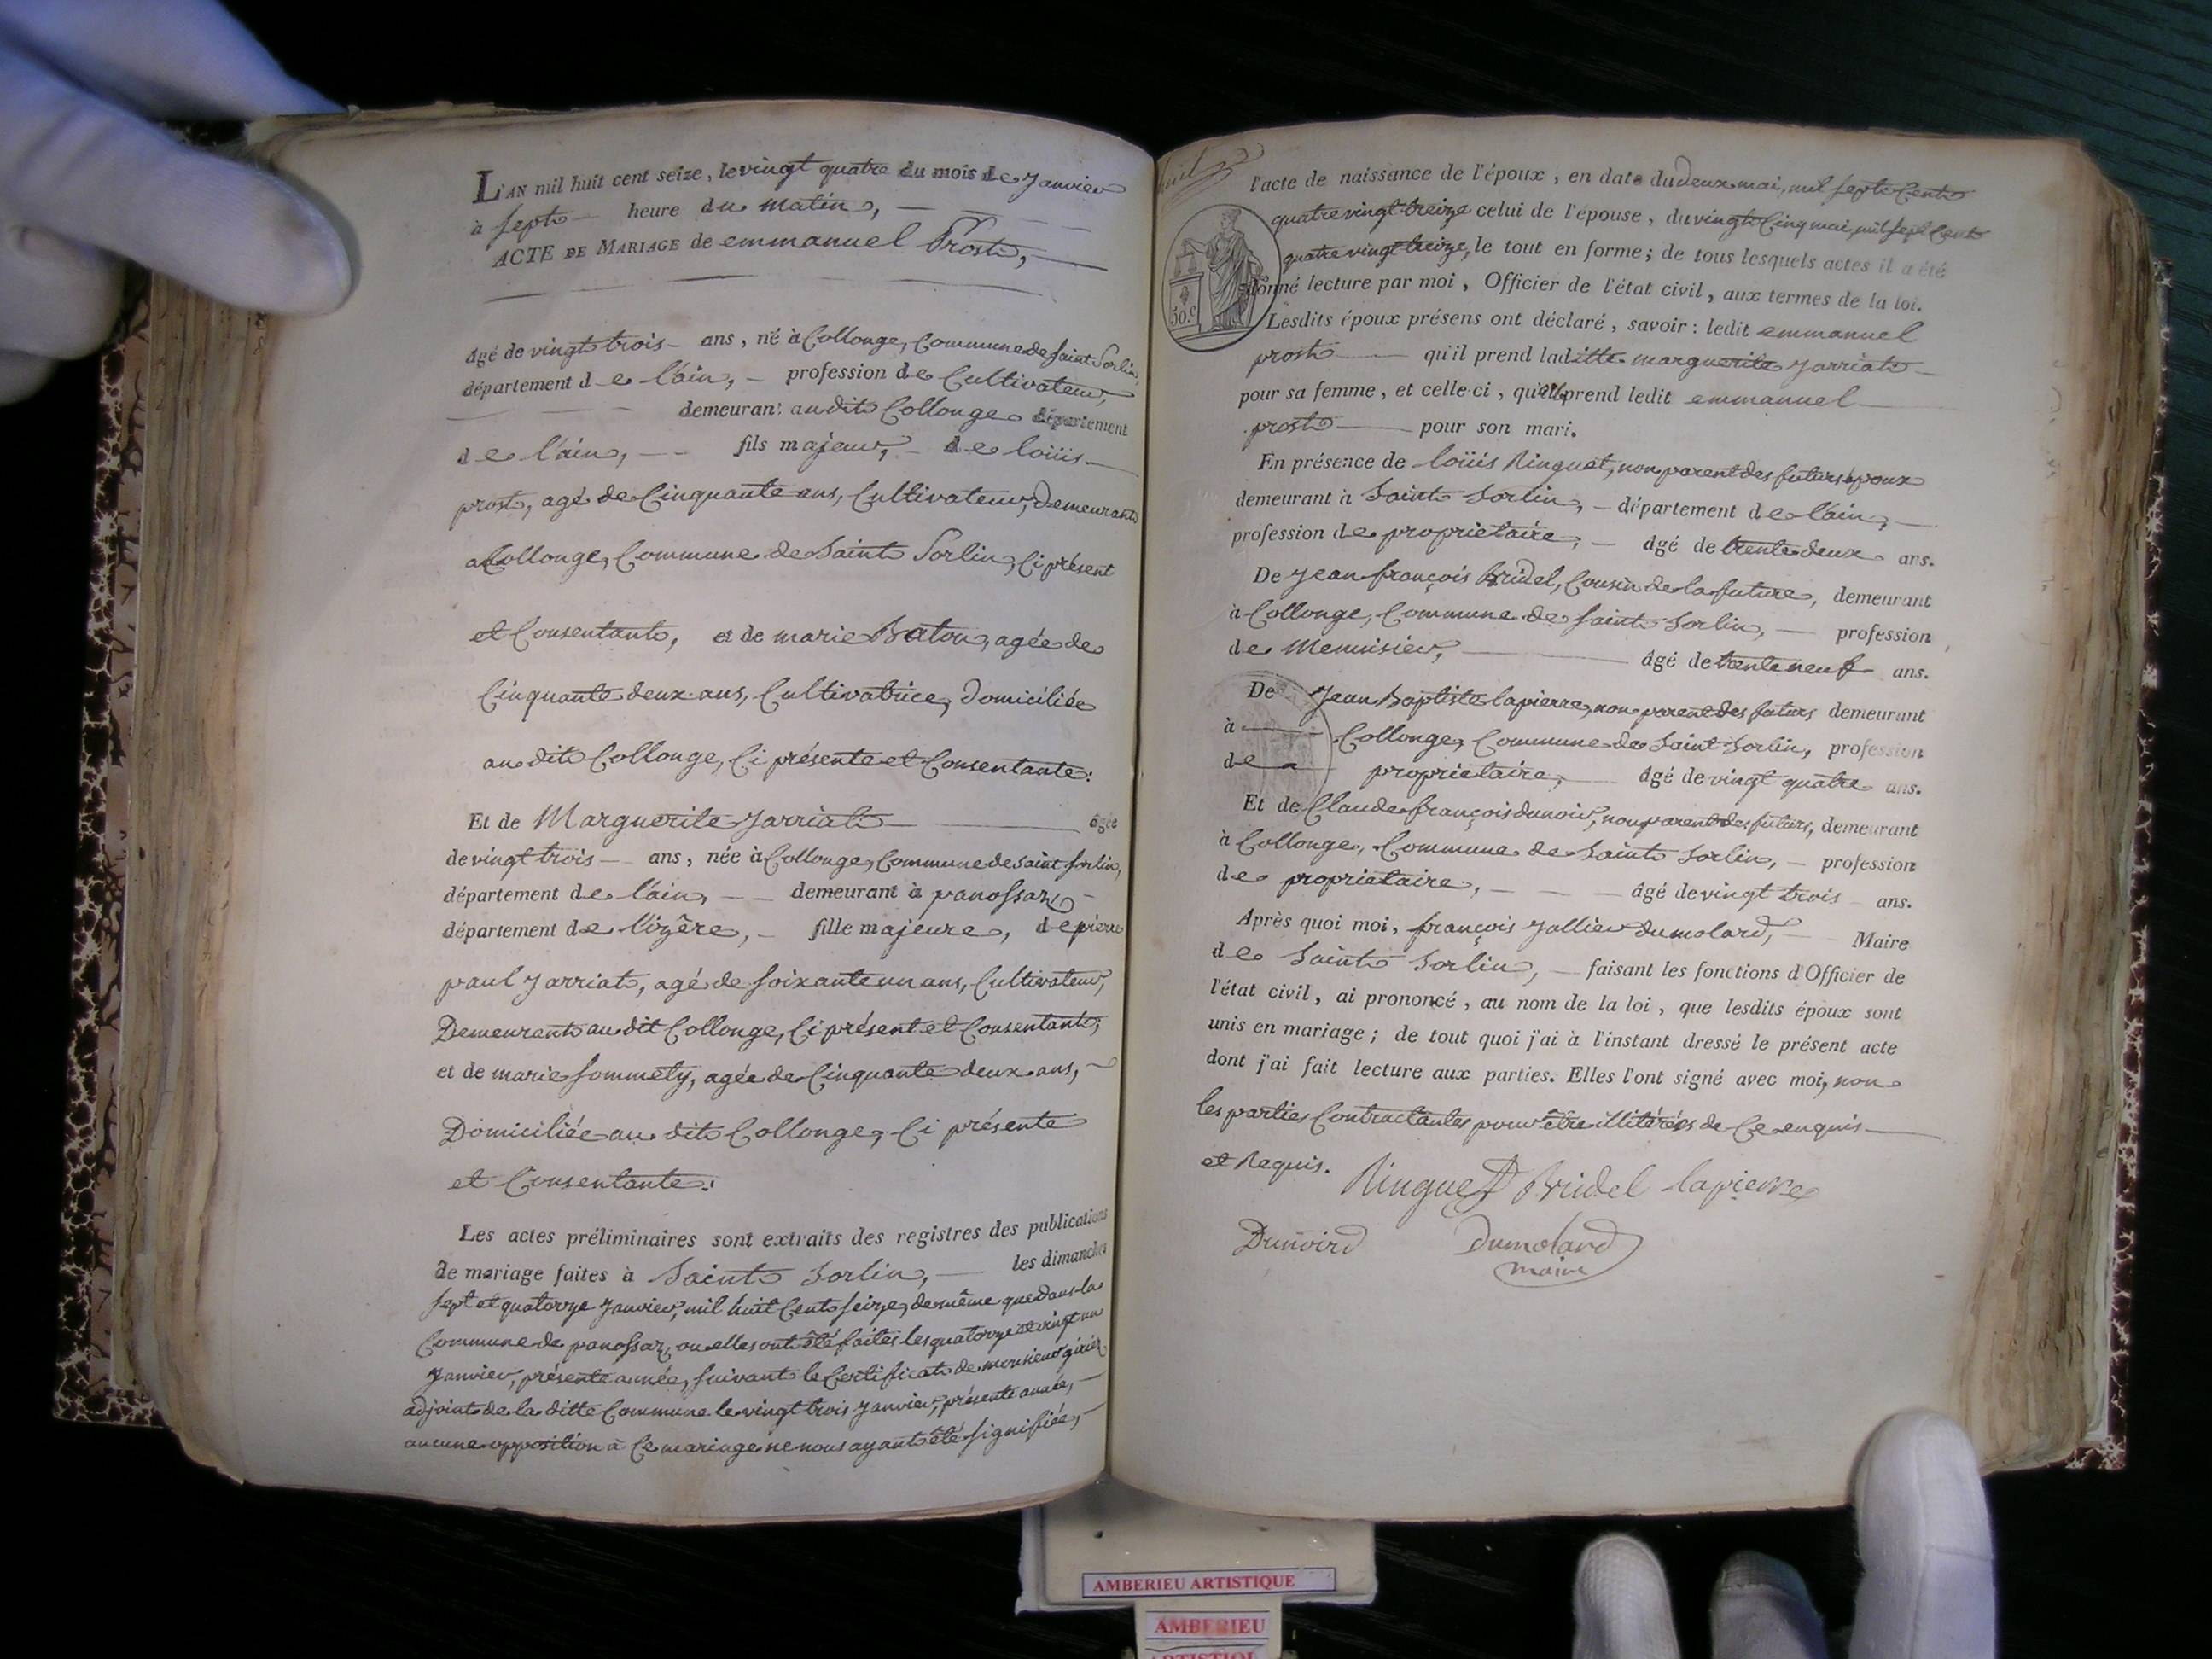 L'AN mil huit cent seize, le vingt quatre du mois de Janvier
à sept heure du matin,
ACTE DE MARIAGE de emmanuel Prost,
âgé de vingt trois ans, né à Collonge, Commune de Saint Sorlin,
département de l'ain, profession de Cultivateur,
demeurant audit Collonge département
de l'ain, fils majeur, de loüis
prost, agé de Cinquante ans, Cultivateur, Demeurant
a Collonge, Commune de Saint Sorlin, Ci présent
et Consentant, et de marie Baton, agée de
Cinquante deux ans, Cultivatrice, Domiciliée
au dit Collonge, Ci présente et Consentante:
Et de Marguerite Jarriat âgée
de vingt trois ans, née à Collonge, Commune de saint sorlin,
département de l'ain, demeurant à panossaz
département de l'izêre, fille majeure, de pierre
paul Jarriat, agé de soixante un ans, Cultivateur,
Demeurant au dit Collonge, Ci présent et Consentant;
et de marie sommety, agée de Cinquante deux ans,
Domiciliée au dit Collonge, Ci présente
et Consentante:
Les actes préliminaires sont extraits des registres des publications
de mariage faites à Saint Sorlin, les dimanches
sept et quatorze Janvier, mil huit Cent seize, de même que dans la
Commune de panossaz, ou elles ont été faites les quatorze et vingt un
Janvier, présente année, suivant le Certificat de monsieur girier
adjoint de la ditte Commune le vingt trois Janvier, présente année,
aucune opposition à Ce mariage ne nous ayant été signifiée,
huit
l'acte de naissance de l'époux, en date du deux mai, mil sept Cent
quatre vingt treize celui de l'épouse, du vingt Cinq mai, mil sept Cent
quatre vingt treize, le tout en forme; de tous lesquels actes il a été
donné lecture par moi, Officier de l'état civil, aux termes de la loi.
50.c
Lesdits époux présens ont déclaré, savoir: ledit emmanuel
prost qu'il prend laditte marguerite Jarriat
pour sa femme, et celle-ci, qu'elle prend ledit emmanuel
prost pour son mari.
En présence de loüis Ringuet, non parent des futurs époux
demeurant à Saint Sorlin, département de l'ain,
profession de propriétaire, âgé de trente deux ans.
De Jean françois Bridel, Cousin de la future, demeurant
à Collonge, Commune de saint Sorlin, profession
de Menuisier, âgé de trente neuf ans.
De Jean Baptiste lapierre, non parent des futurs demeurant
à Collonge, Commune de Saint Sorlin, profession
de propriétaire, âgé de vingt quatre ans.
Et de Claude françois dunoir, non parent des futurs, demeurant
à Collonge, Commune de Saint Sorlin, profession
de propriétaire, âgé de vingt trois ans.
Après quoi moi, françois Jallier dumolard, Maire
de Saint Sorlin, faisant les fonctions d'Officier de
l'état civil, ai prononcé, au nom de la loi, que lesdits époux sont
unis en mariage; de tout quoi j'ai à l'instant dressé le présent acte
dont j'ai fait lecture aux parties. Elles l'ont signé avec moi, non
les parties Contractantes pour être illitérés de Ce enquis
et Requis. Ringuet Bridel lapierre
Dunoird Dumolard
maire
AMBERIEU ARTISTIQUE
AMBERIEU
ARTISTIQUE